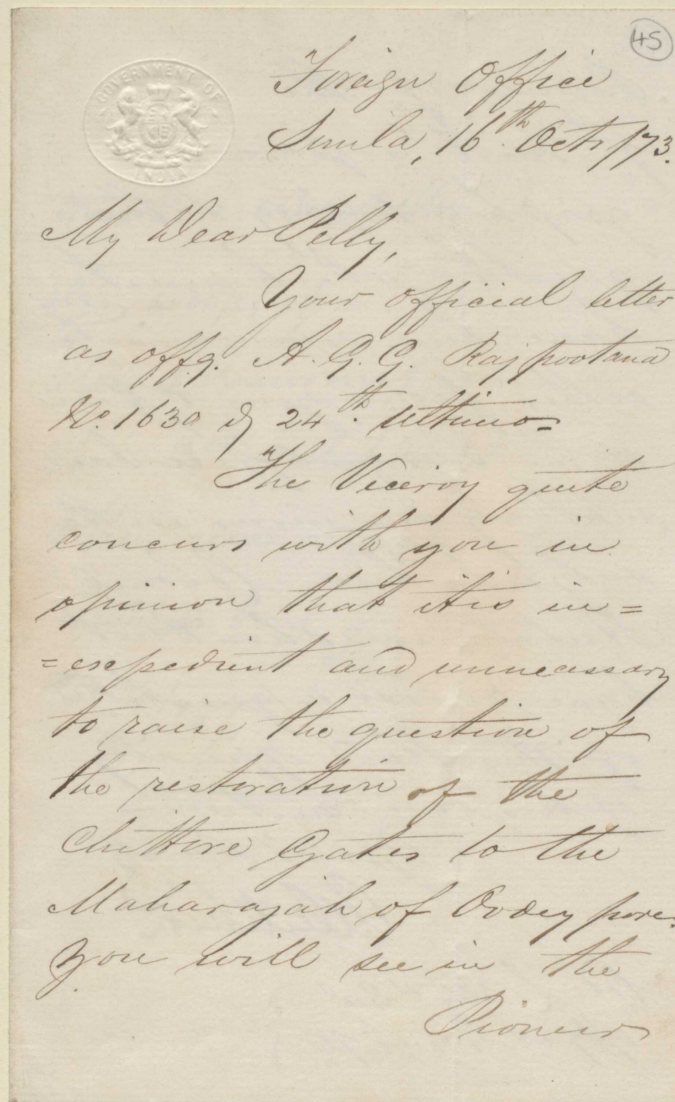 45
GOVERNMENT OF
INDIA
Foreign Office
Simla, 16th Octr /73.
My Dear Pelly,
Your official letter
as offg. A. G. G. Rajpootana
No. 1630 of 24th ultimo=
The Viceroy quite
concurs with you in
opinion that it is in=
=expedient and unnecessary
to raise the question of
the restoration of the
Chittore Gates to the
Maharajah of Oodeypore.
You will see in the
Pioneer